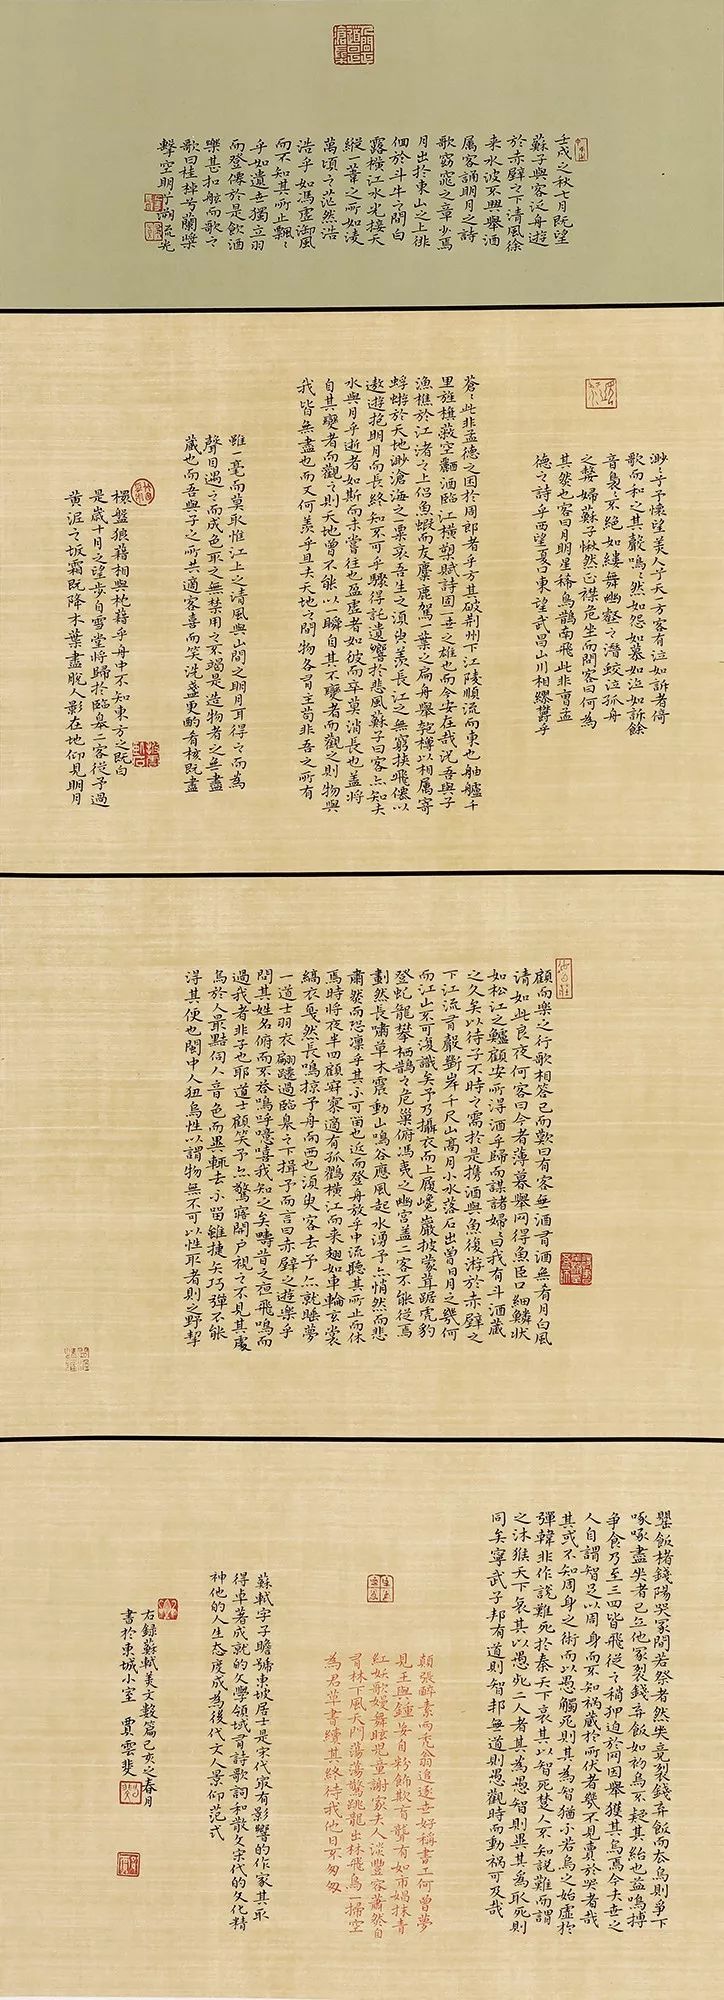 壬戌之秋七月既望
蘇子與客泛舟遊
於赤壁之下清風徐
来水波不興舉酒
属客誦明月之詩
歌窈窕之章少焉
月出於東山之上徘
徊於斗牛之間白
露橫江水光接天
縱一葦之所如淩
萬頃之茫然浩
浩乎如馮虚御風
而不知其所止飄〻
乎如遺世獨立羽
而登僊於是飲酒
樂甚扣舷而歌之
歌曰桂棹兮蘭槳
擊空明兮溯流光
渺〻兮予懷望美人兮天一方客有泣如訴者倚
歌而和之其聲嗚〻然如怨如慕如泣如訴餘
音裊〻不絕如縷舞幽壑之潛蛟泣孤舟
之嫠婦蘇子愀然正襟危坐而問客曰何為
其然也客曰月明星稀烏鵲南飛此非曹孟
德之詩乎西望夏口東望武昌山川相繆鬱乎
蒼〻此非孟德之困於周郎者乎方其破荆州下江陵順流而東也舳艫千
里旌旗蔽空釃酒臨江橫槊賦詩固一世之雄也而今安在哉況吾與子
漁樵於江渚之上侶魚蝦而友麋鹿駕一葉之扁舟舉匏樽以相属寄
蜉蝣於天地渺滄海之一粟哀吾生之須臾羨長江之無窮挾飛僊以
遨遊抱明月而長終知不可乎驟得託遺響於悲風蘇子曰客亦知夫
水與月乎逝者如斯而未嘗往也盈虚者如彼而卒莫消長也盖將
自其變者而觀之則天地曾不能以一瞬自其不變者而觀之則物與
我皆無盡也而又何羨乎且夫天地之間物各有主苟非吾之所有
雖一毫而莫取惟江上之清風與山間之明月耳得之而為
聲目遇之而成色取之無禁用之不竭是造物者之無盡
藏也而吾與子之所共適客喜而笑洗盞更酌肴核既盡
杯盤狼藉相與枕藉乎舟中不知東方之既白
是歲十月之望步自雪堂將歸於臨皋二客從予過
黄泥之坂霜既降木葉盡脱人影在地仰見明月
顧而樂之行歌相答已而歎曰有客無酒有酒無肴月白風
清如此良夜何客曰今者薄暮舉网得魚巨口細鱗狀
如松江之鱸顧安所得酒乎歸而謀諸婦〻曰我有斗酒藏
之久矣以待子不時之需於是携酒與魚復游於赤壁之
下江流有聲斷岸千尺山高月小水落石出曾日月之幾何
而江山不可復識矣予乃攝衣而上履巉巖披蒙茸踞虎豹
登虬龍攀栖鶻之危巢俯馮夷之幽宫盖二客不能從焉
劃然長嘯草木震動山鳴谷應風起水湧予亦悄然而悲
肅然而恐凛乎其不可畱也返而登舟放乎中流聽其所止而休
焉時將夜半四顧寂寥適有孤鶴橫江而来翅如車輪玄裳
縞衣戛然長鳴掠予舟而西也須臾客去予亦就睡夢
一道士羽衣翩躚過臨皋之下揖予而言曰赤壁之遊樂乎
問其姓名俯而不答嗚呼噫嘻我知之矣疇昔之夜飛鳴而
過我者非子也耶道士顧笑予亦驚寤開户視之不見其處
烏於人最黠伺人音色而異輒去不畱雖捷矢巧彈不能
得其便也閩中人狃烏性以謂物無不可以性取者則之野挈
罌飯楮錢陽哭冢間若祭者然哭竟裂錢弃飯而去烏則爭下
啄啄盡哭者已立他冢裂錢弃飯如初烏不疑其紿也益鳴搏
爭食乃至三四皆飛從之稍狎迫於网因舉獲其烏焉今夫世之
人自謂智足以周身而不知禍藏於所伏者幾不見賣於哭者哉
其或不知周身之術而以愚觸死則其為智猶不若烏之始虚於
彈韓非作說難死於秦天下哀其以智死楚人不知說難而謂
之沐猴天下哀其以愚死二人者其為愚智則異其為取死則
同矣寧武子邦有道則智邦無道則愚觀時而動禍可及哉
顛張醉素兩禿翁追逐世好稱書工何曾夢
見王與鍾妄自粉飾欺盲聾有如市娼抹青
紅妖歌嫚舞眩兒童謝家夫人淡豐容蕭然自
有林下風天門蕩蕩驚跳龍出林飛鳥一掃空
為君草書續其終待我他日不匆匆
蘇軾字子瞻號東坡居士是宋代最有影響的作家其取
得卓著成就的文學領域有詩歌詞和散文宋代的文化精
神他的人生态度成為後代文人景仰范式
右録蘇軾美文數篇己亥之春月
書於東城小室 賈雲斐